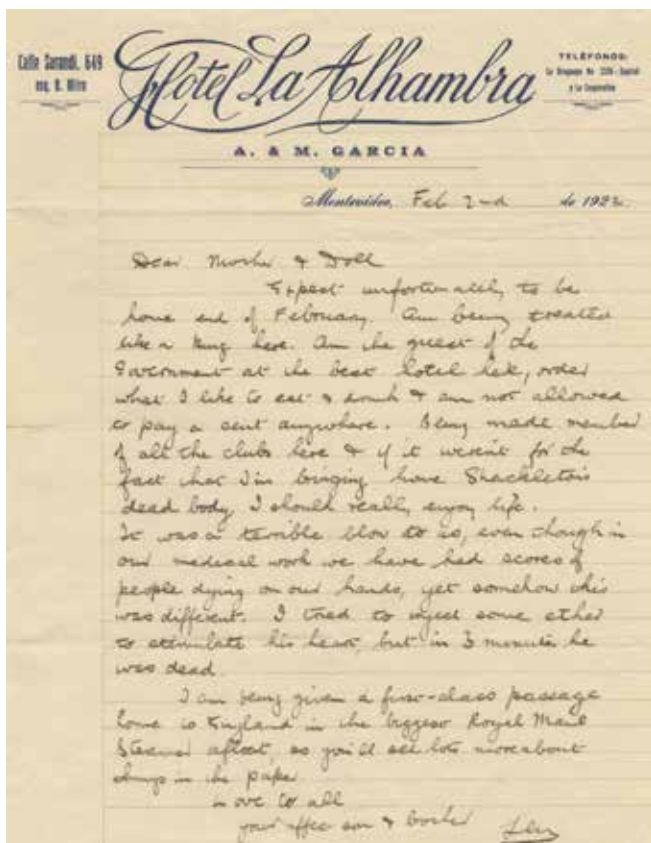 Calle Sarandi, 649
esq. B. Mitre
Hotel La Alhambra
TELÉFONOS:
La Uruguaya No 226 - Central
y La Cooperativa
A. & M. GARCIA
Montevideo, Feb 2nd de 1922
Dear Mother & Doll
Expect unfortunately to be
home end of February. Am being treated
like a King here. Am the guest of the
Government at the best hotel here, order
what I like to eat & drink & am not allowed
to pay a cent anywhere. Being made member
of all the clubs here & if it weren't for the
fact that I'm bringing home Shackleton's
dead body, I should really enjoy life.
It was a terrible blow to us, even though in
our medical work we have had scores of
people dying on our hands, yet somehow this
was different. I tried to inject some ether
to stimulate his heart, but in 3 minutes he
was dead.
I am being given a first-class passage
home to England in the biggest Royal Mail
Steamer afloat, so you'll see lots more about
things in the paper
Love to all
your affec son & brother